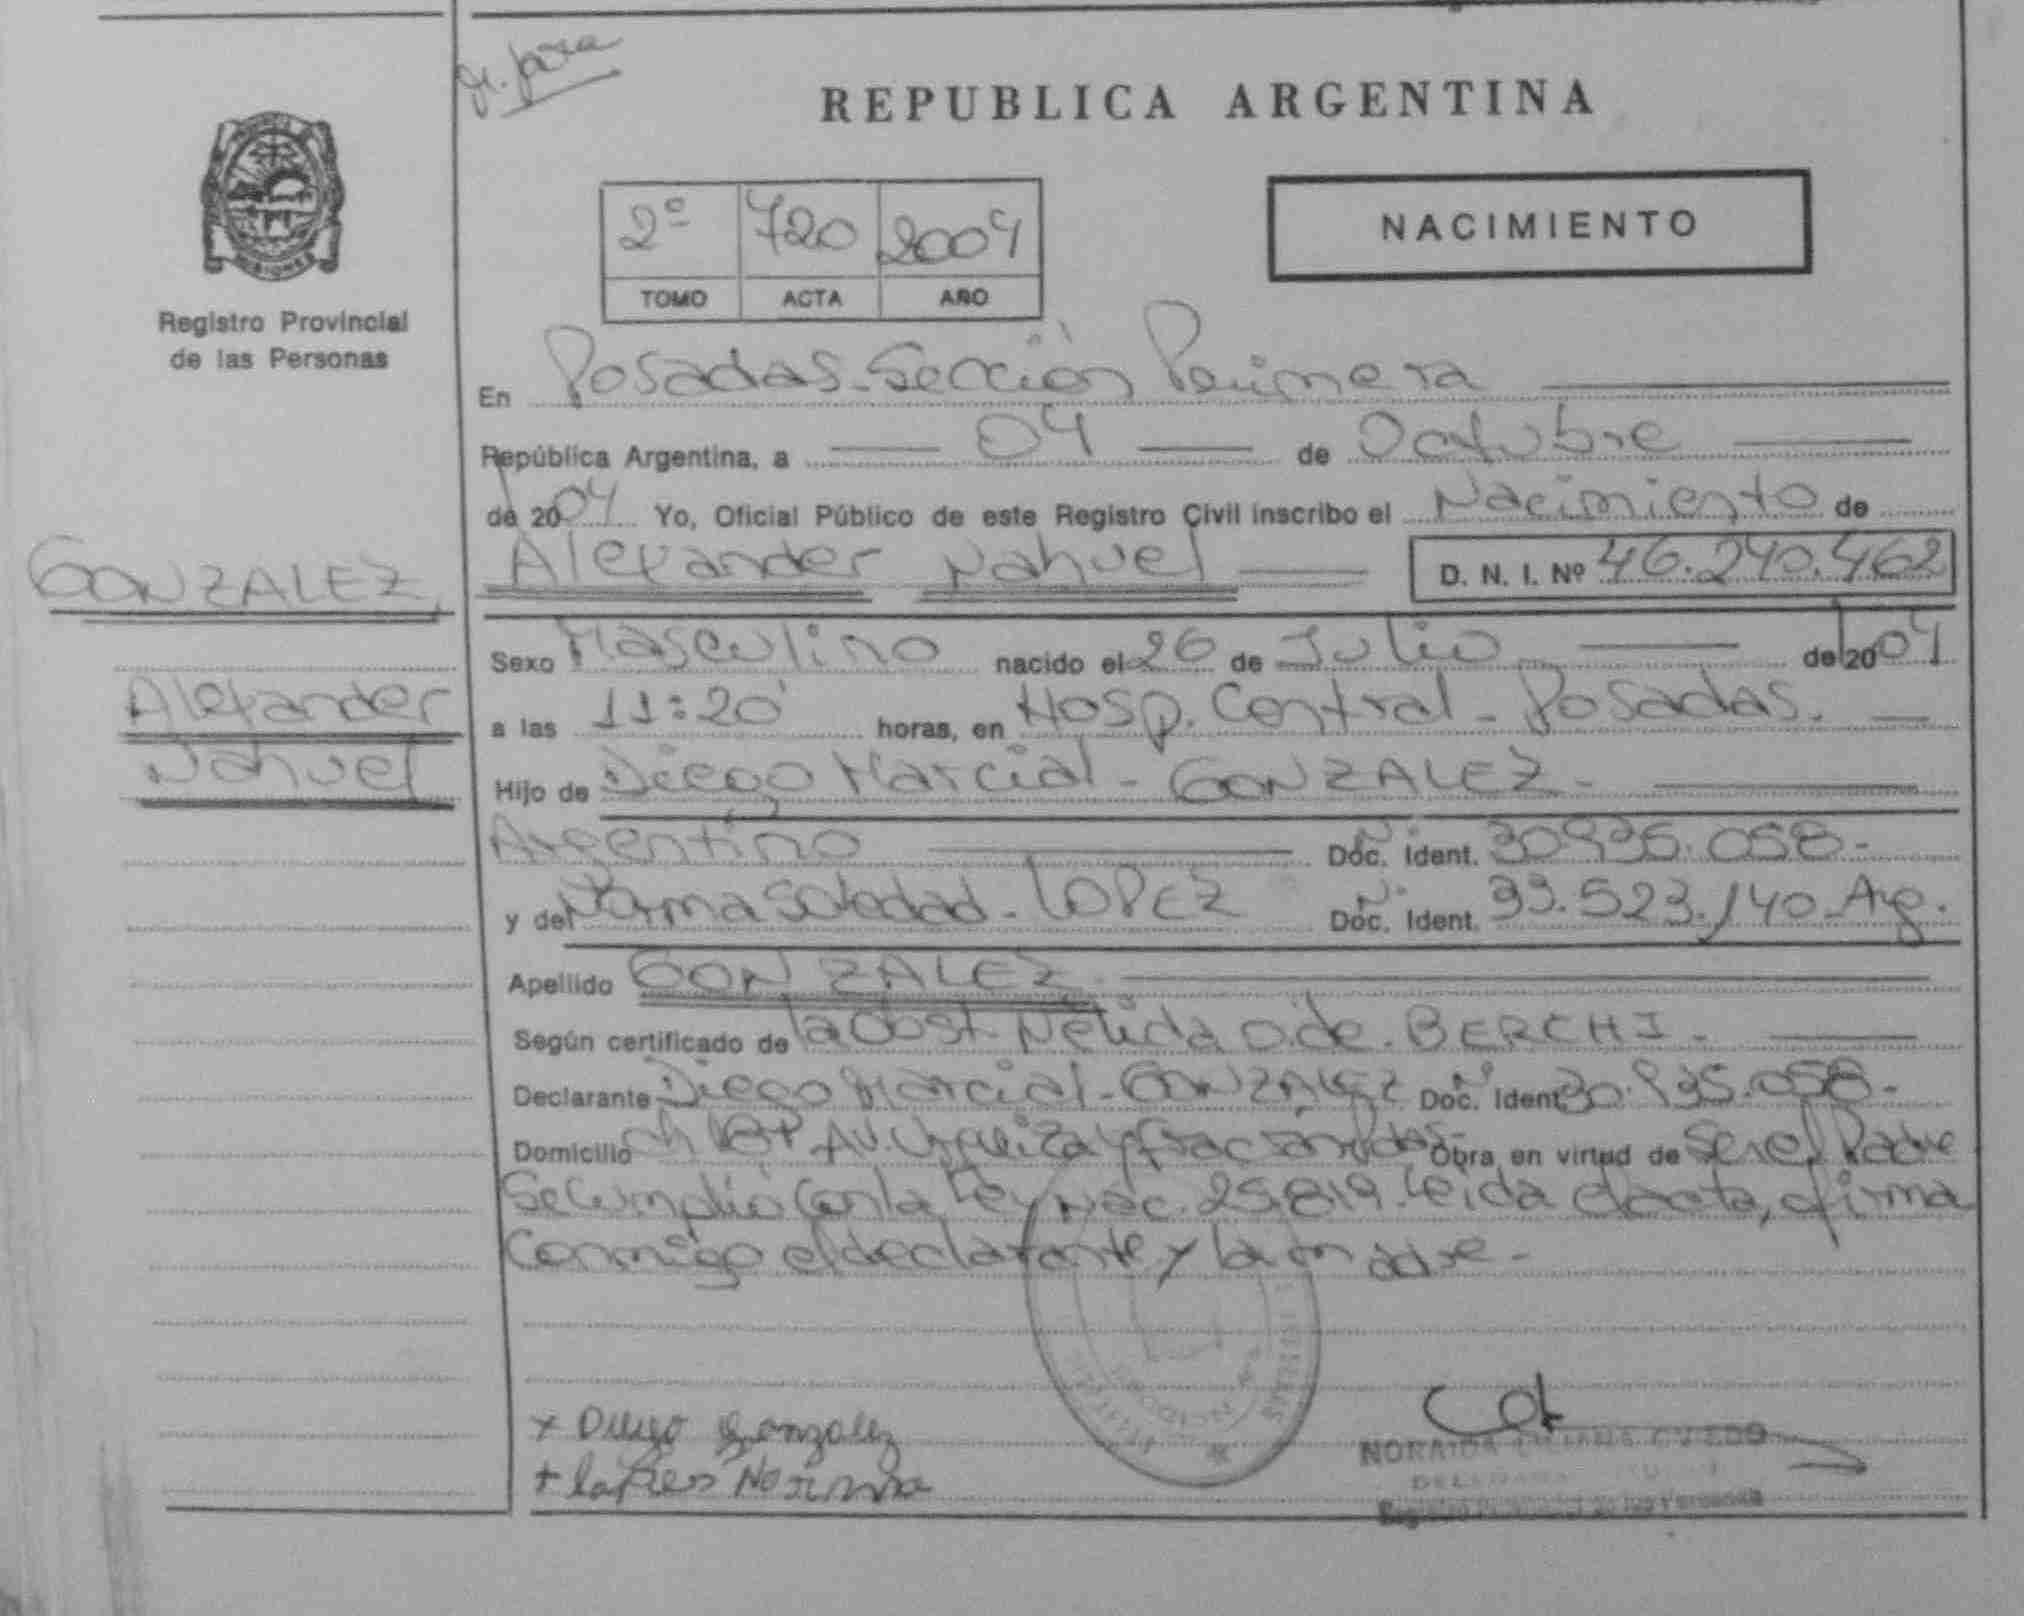 REPUBLICA ARGENTINA
NACIMIENTO
2º 720 2004
TOMO ACTA AÑO
MISIONES
Registro Provincial
de las Personas
En Posadas-Sección Primera
República Argentina, a 04 de Octubre
de 2004 Yo, Oficial Público de este Registro Civil inscribo el Nacimiento de
GONZALEZ,
Alexander Nahuel D. N. I. Nº 46.240.462
Sexo Masculino nacido el 26 de Julio de 2004
Alexander
Nahuel
a las 11:20' horas, en Hosp. Central - Posadas.
Hijo de Diego Marcial - GONZALEZ -
Argentino Nº Doc. Ident. 30.935.058-
y de Norma Soledad - LOPEZ Nº Doc. Ident. 33.523.140-Arg.
Apellido GONZALEZ
Según certificado de la Obst. Nelida O. de. BERCHI.
Declarante Diego Marcial - GONZALEZ Nº Doc. Ident 30.935.058-
Domicilio Av. Urquiza y Obra en virtud de Ser el Padre
Se Cumplió Con la Ley Nac. 25.819. Leída el acta, firma
Conmigo el declarante y la madre -
x Diego Gonzalez
+ Lopez Norma
OVIEDO
Registro Provincial de las Personas